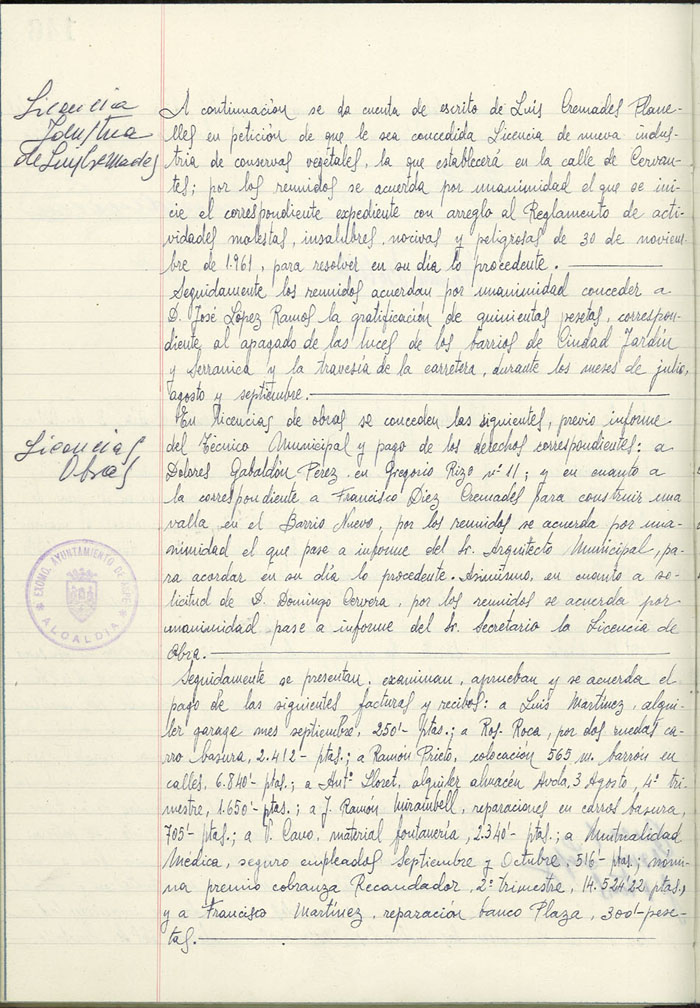 Licencia
Industria
de Luis Cremades
A continuación se da cuenta de escrito de Luis Cremades Plane-
lles en petición de que le sea concedida Licencia de nueva indus-
tria de conservas vegetales, la que establecerá en la calle de Cervan-
tes; por los reunidos se acuerda por unanimidad el que se ini-
cie el correspondiente expediente con arreglo al Reglamento de acti-
vidades molestas, insalubres, nocivas y peligrosas de 30 de noviem-
bre de 1.961, para resolver en su día lo procedente.
Seguidamente los reunidos acuerdan por unanimidad conceder a
D. José López Ramos la gratificación de quinientas pesetas, correspon-
diente al apagado de las luces de los barrios de Ciudad Jardín
y Serranica y la travesía de la carretera, durante los meses de julio,
agosto y septiembre.
Licencias
Obras
En licencias de obras se conceden las siguientes, previo informe
del Técnico Municipal y pago de los derechos correspondientes: a
Dolores Gabaldón Pérez en Gregorio Rizo nº 11; y en cuanto a
la correspondiente a Francisco Díez Cremades para construir una
valla en el Barrio Nuevo, por los reunidos se acuerda por una-
nimidad el que pase a informe del Sr. Arquitecto Municipal, pa-
ra acordar en su día lo procedente. Asimismo, en cuanto a so-
licitud de D. Domingo Cervera, por los reunidos se acuerda por
unanimidad pase a informe del Sr. Secretario la Licencia de
Obra.
EXCMO. AYUNTAMIENTO DE ASPE
ALCALDIA
Seguidamente se presentan, examinan, aprueban y se acuerda el
pago de las siguientes facturas y recibos: a Luis Martínez, alqui-
ler garage mes septiembre, 250'- ptas.; a Ros. Roca, por dos ruedas ca-
rro basura, 2.412- ptas.; a Ramón Prieto, colocación 565 m. barrón en
calles, 6.840'- ptas.; a Antº Lloret, alquiler almacén Avda. 3 Agosto, 4º tri-
mestre, 1.650'- ptas.; a J. Ramón Mirambell, reparaciones en carros basura,
705'- ptas.; a V. Cano, material fontanería, 2.340'- ptas.; a Mutualidad
Médica, seguro empleados Septiembre y Octubre, 516'- ptas; nómi-
na premio cobranza Recaudador, 2º trimestre, 14.524'22 ptas.,
y a Francisco Martínez, reparación banco Plaza, 300'- pese-
tas.